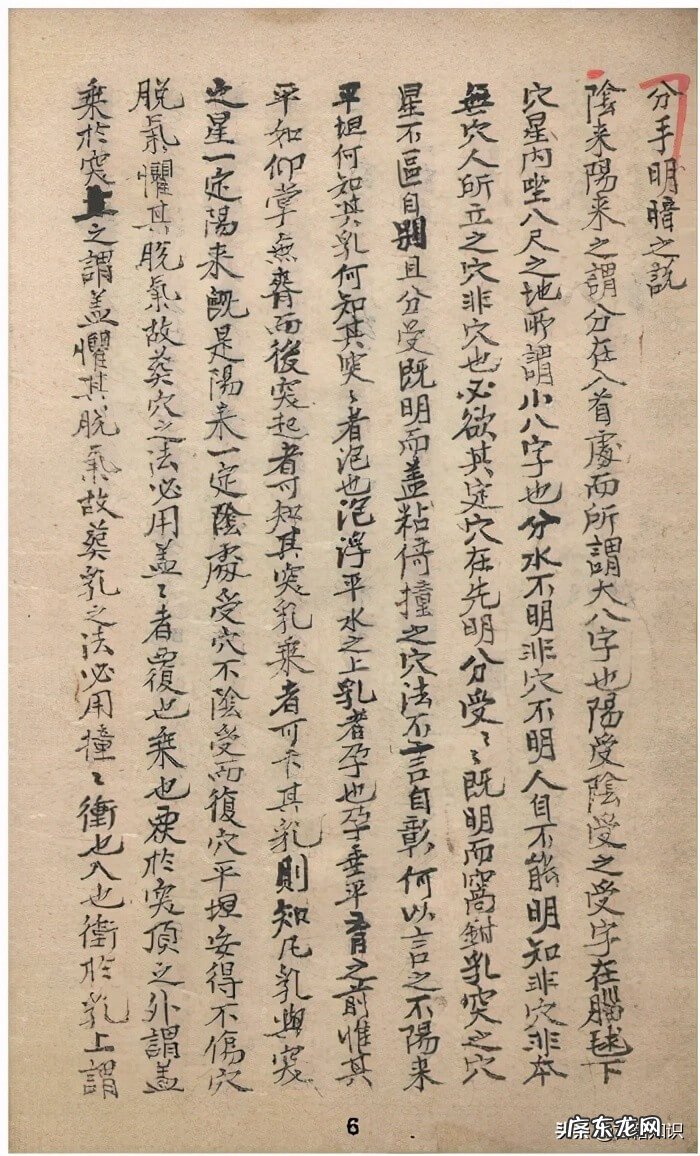 分手明暗之説
陰来陽来之謂分在八首處而所謂大八字也陽受陰受之受字在腦毬下
穴星內坐八尺之地所謂小八字也分水不明非穴不明人自不能明知非穴非本
無穴人所立之穴非穴也必欲其定穴在先明分受〻既明而窩鉗乳突之穴
星不區自別且分受既明而盖粘倚撞之穴法不言自彰何以言之不陽来
平坦何知其乳何知其突〻者泡也泡浮平水之上乳者孕也孕垂平胷之前惟其
平如仰掌無脊而後突起者可知其突乳乘者可卡其乳則知凡乳與突
之星一定陽来既是陽来一定陰處受穴不陰受而復穴平坦安得不傷穴
脱氣懼其脱氣故葬穴之法必用盖〻者覆也乘也覆於突頂之外謂盖
乘於突上之謂盖懼其脱氣故葬乳之法必用撞〻衝也入也衝於乳上謂
6
头条
东龙网
知识